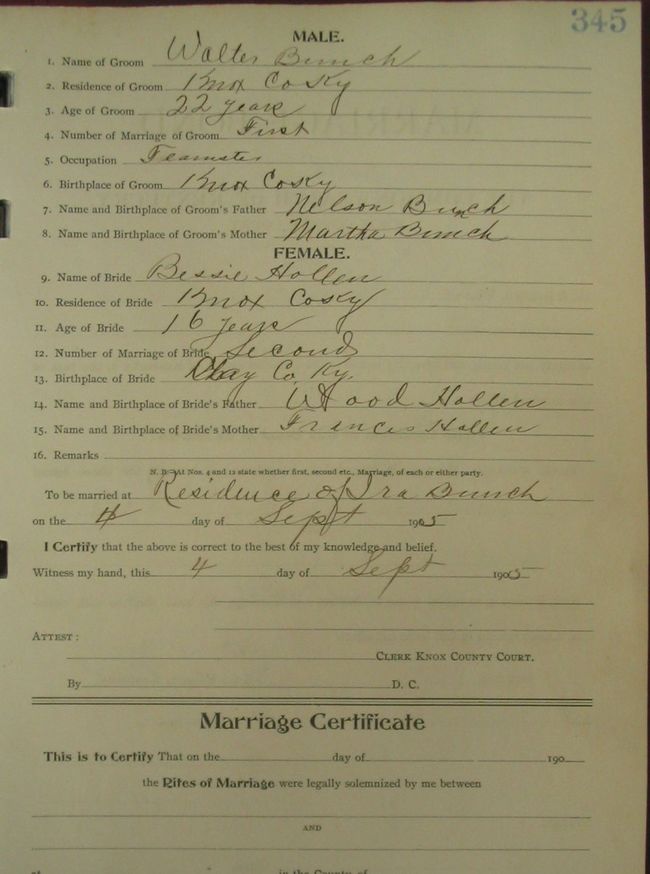 345
MALE.
1. Name of Groom Walter Bunch
2. Residence of Groom Knox Co Ky
3. Age of Groom 22 years
4. Number of Marriage of Groom First
5. Occupation Teamster
6. Birthplace of Groom Knox Co Ky
7. Name and Birthplace of Groom's Father Nelson Bunch
8. Name and Birthplace of Groom's Mother Martha Bunch
FEMALE.
9. Name of Bride Bessie Hollen
10. Residence of Bride Knox Co Ky
11. Age of Bride 16 years
12. Number of Marriage of Bride Second
13. Birthplace of Bride Clay Co Ky.
14. Name and Birthplace of Bride's Father Wood Hollen
15. Name and Birthplace of Bride's Mother Frances Hollen
16. Remarks
N. B.—At Nos. 4 and 12 state whether first, second etc., Marriage, of each or either party.
To be married at Residence of Ira Bunch
on the 4 day of Sept 1905
I Certify that the above is correct to the best of my knowledge and belief.
Witness my hand, this 4 day of Sept 1905
ATTEST:
CLERK KNOX COUNTY COURT.
By D. C.
Marriage Certificate
This is to Certify That on the day of 190
the Rites of Marriage were legally solemnized by me between
AND
at in the County of